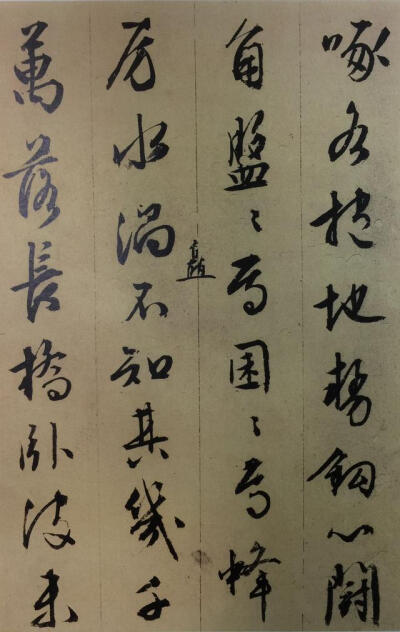 啄各抱地勢鉤心闘
角盤〻焉囷〻焉蜂
房水渦矗不知其幾千
萬落長橋臥波未